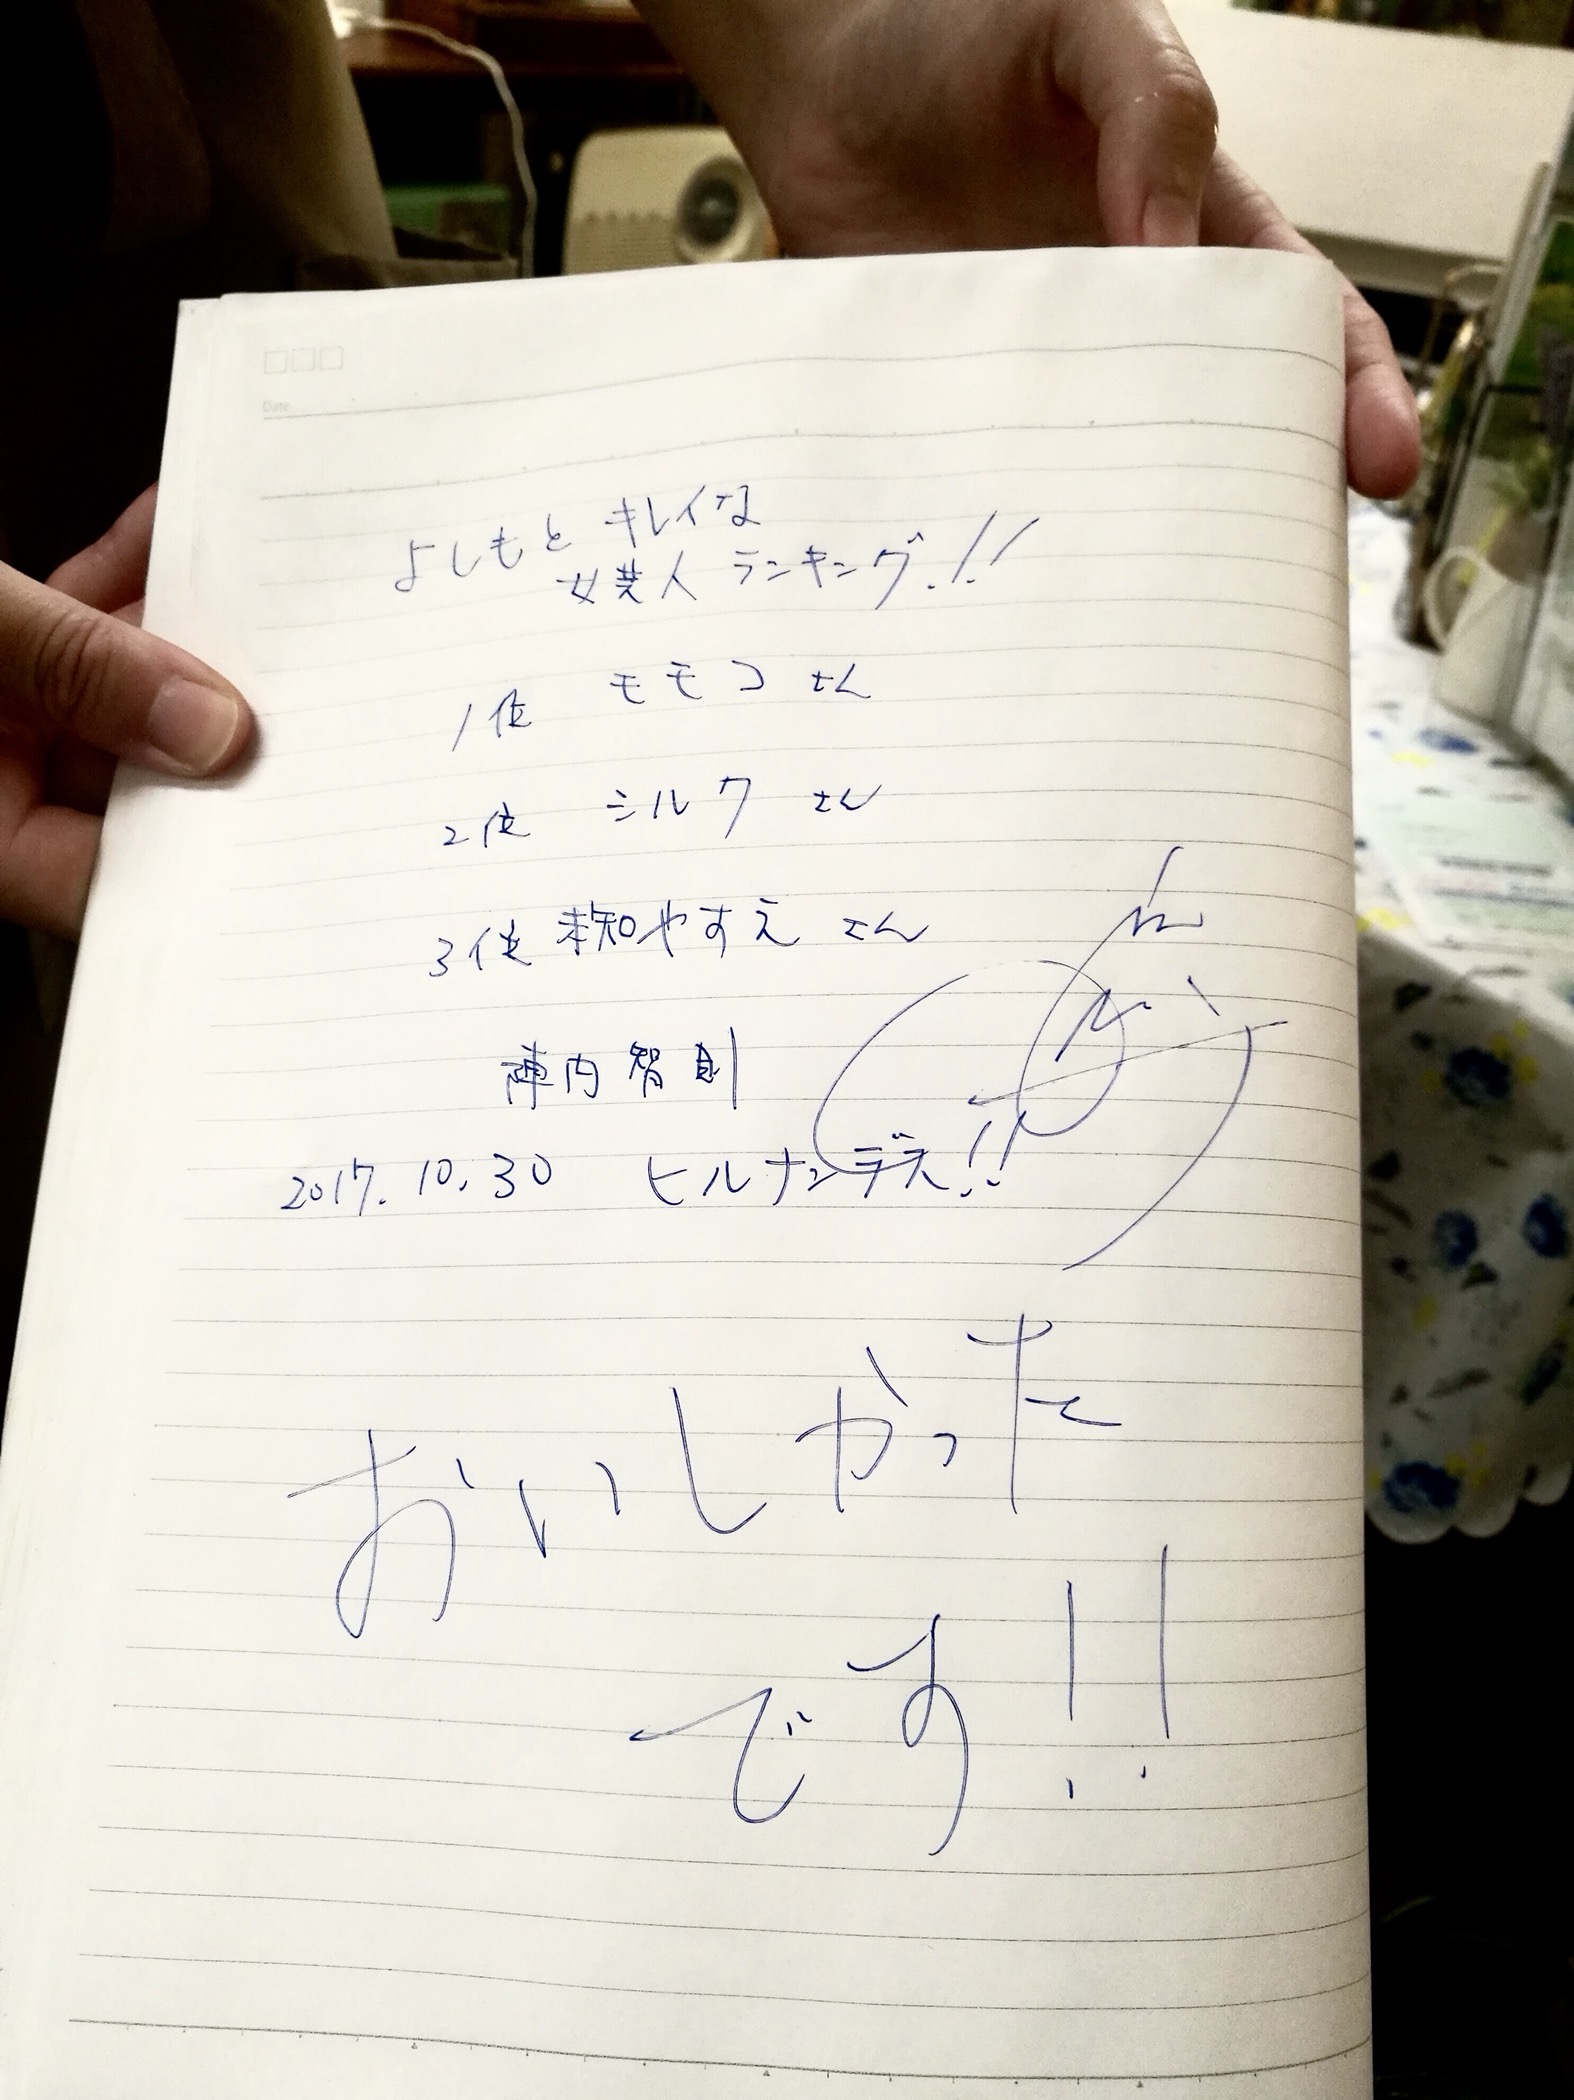 Date
よしもと キレイな
女芸人 ランキング!!
1位 モモコ さん
2位 シルク さん
3位 未知やすえ さん
陣内智則
2017.10.30 ヒルナンデス!!
おいしかった
です!!